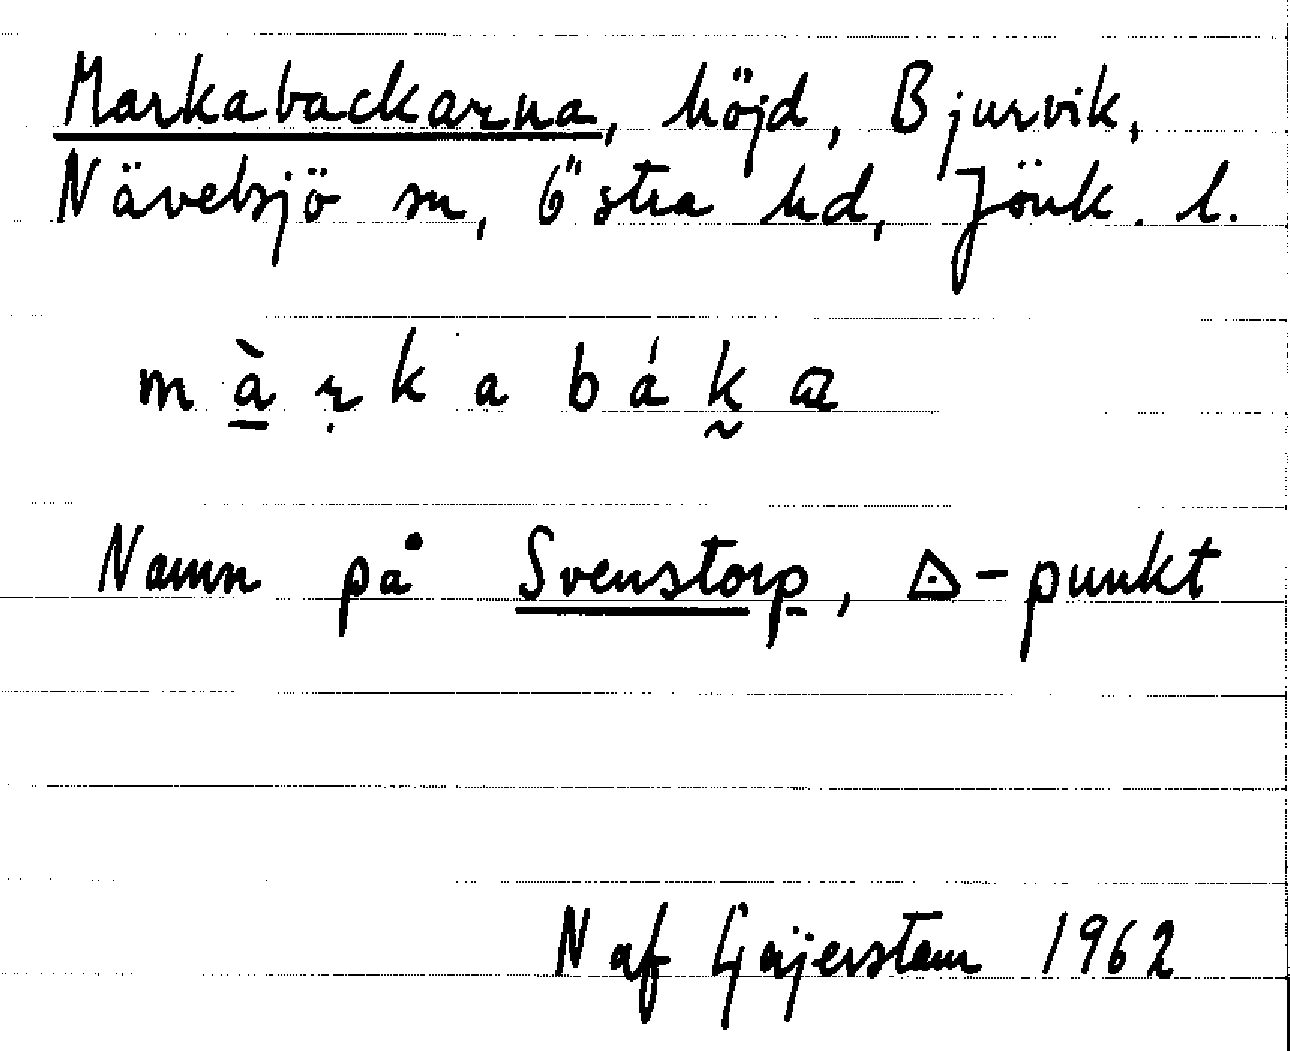 Markabackarna, höjd, Bjurvik,
Nävelsjö sn, Östra hd, Jönk. l.
m à̱ ṛ k a b á k̰ a
Namn på Svenstorp, △-punkt
N af Geijerstam 1962